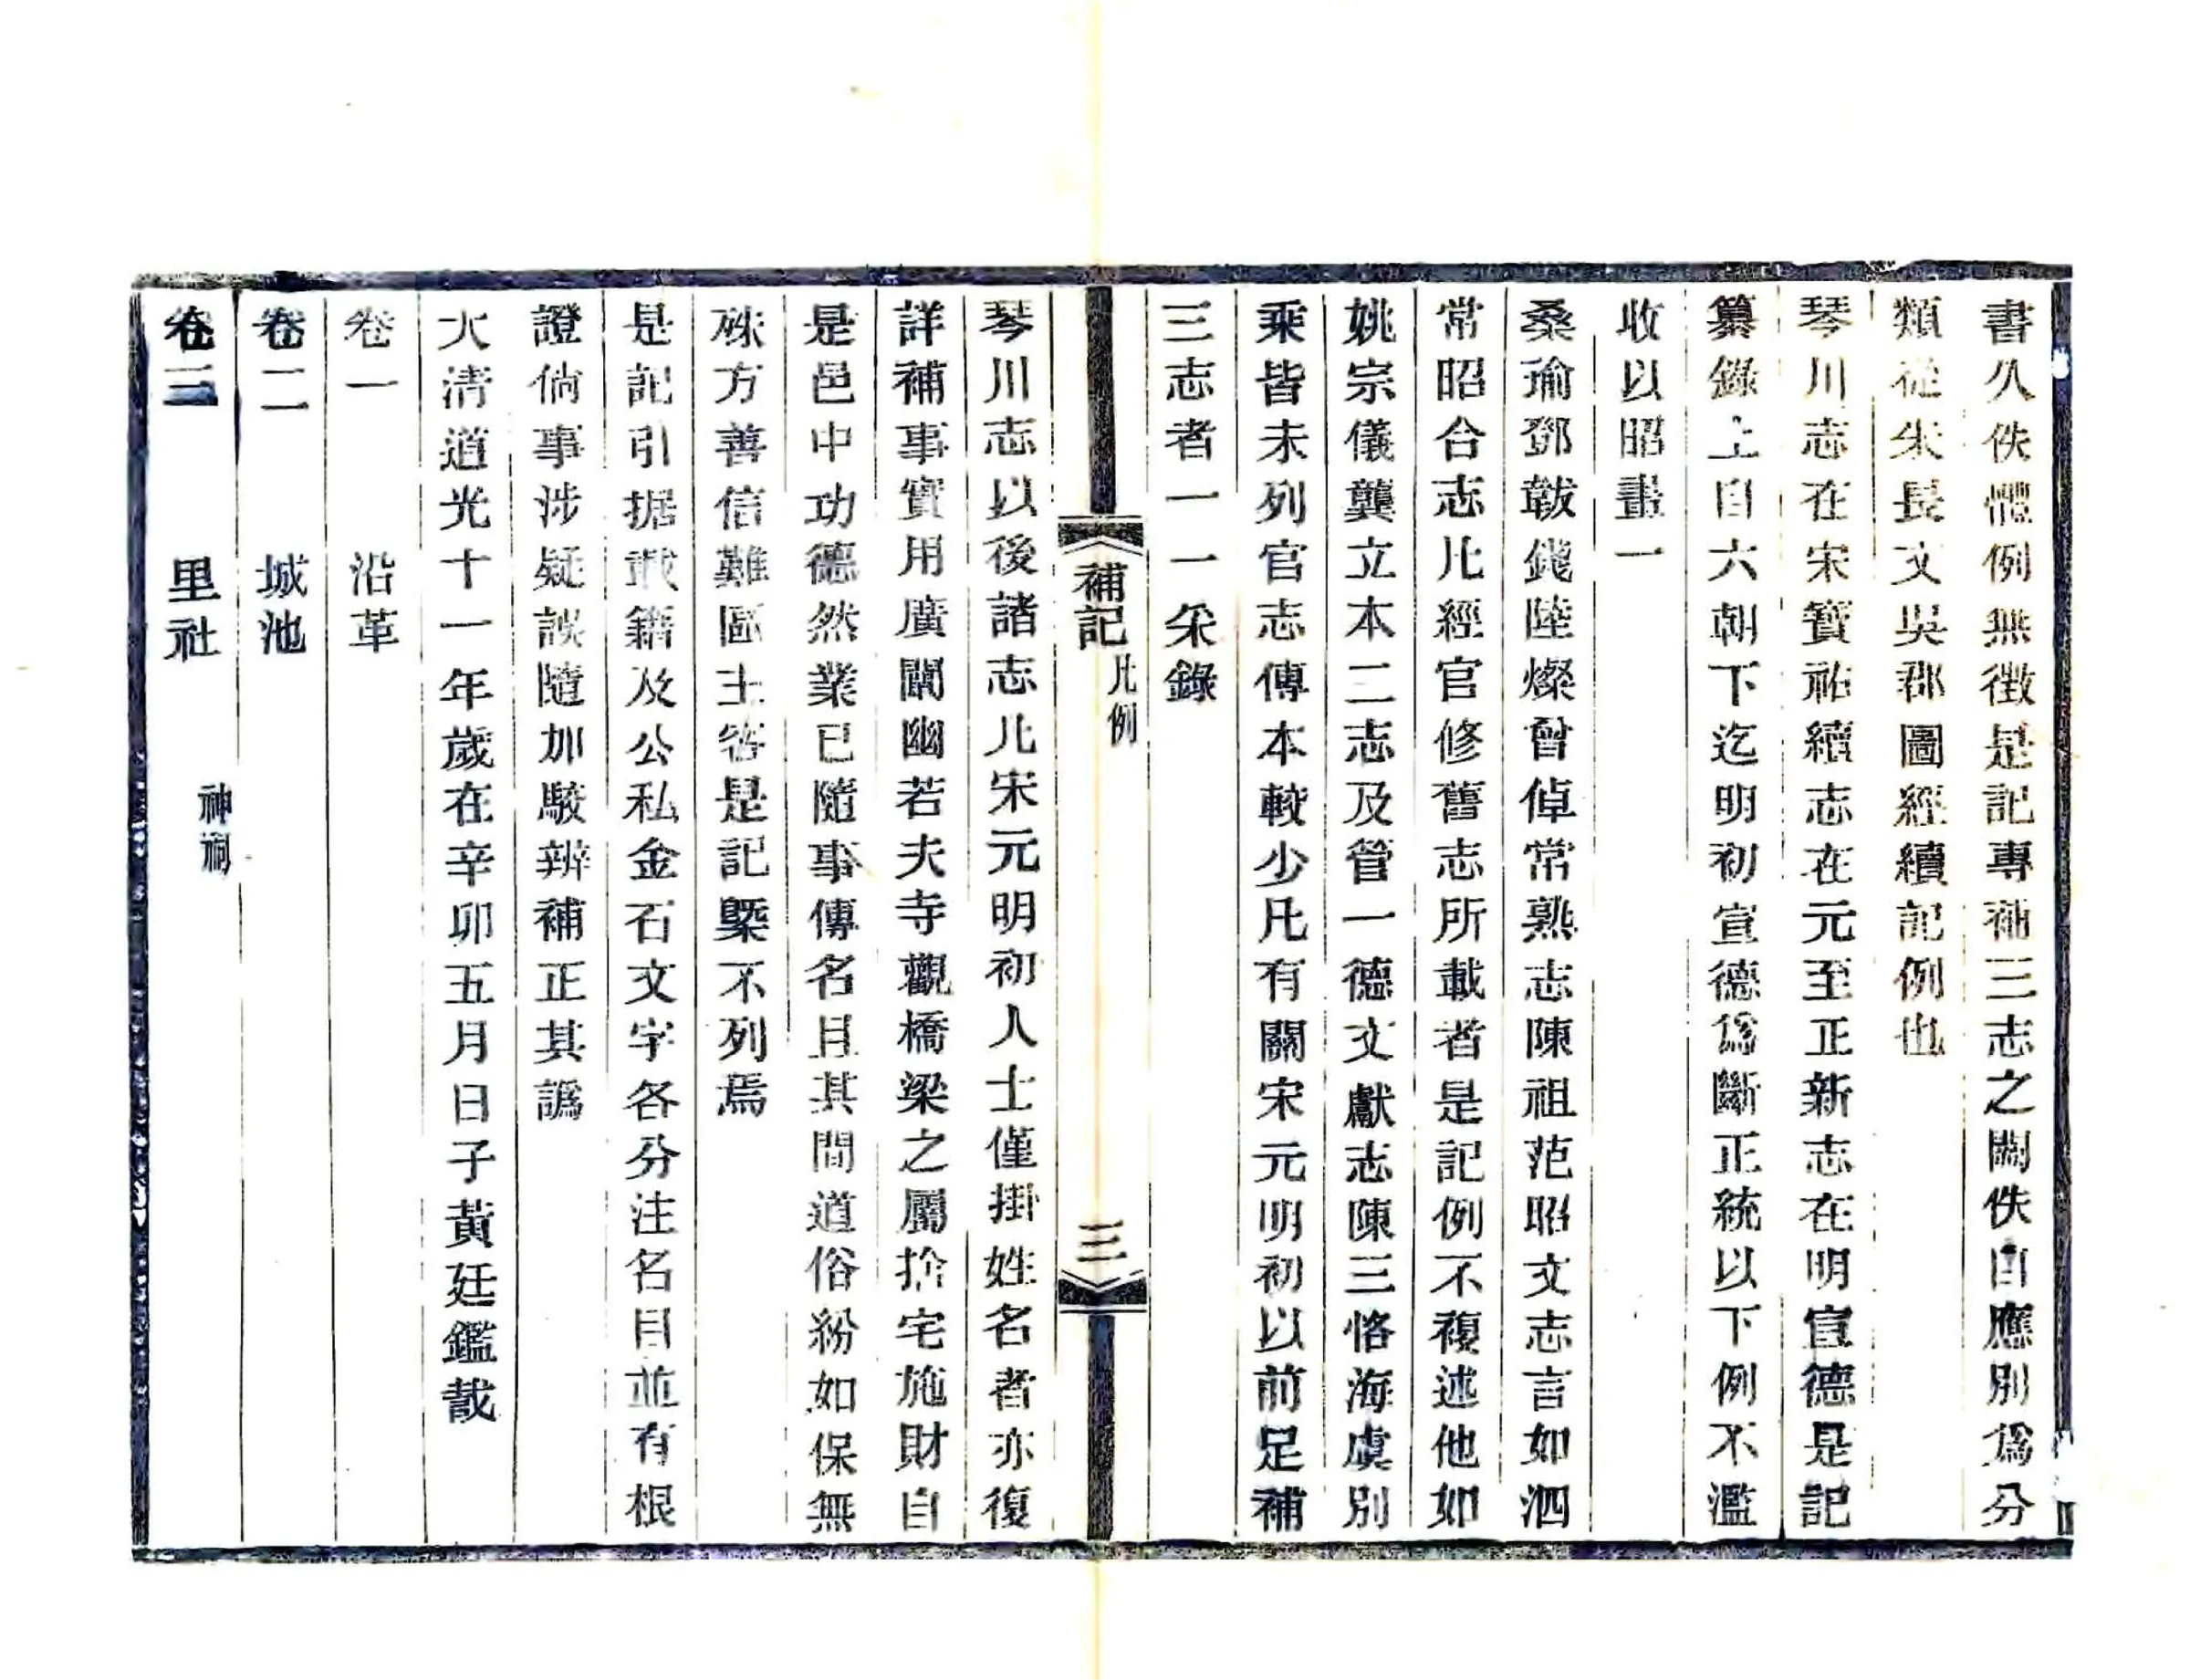 書久佚體例無徵是記專補三志之闕佚自應別爲分
類從朱長文吳郡圖經續記例也
琴川志在宋寶祐續志在元至正新志在明宣德是記
纂錄上自六朝下迄明初宣德爲斷正統以下例不濫
收以昭畫一
桑瑜鄧韍錢陸燦曾倬常熟志陳祖范昭文志言如泗
常昭合志凡經官修舊志所載者是記例不複述他如
姚宗儀龔立本二志及管一德文獻志陳三恪海虞別
乘皆未列官志傳本較少凡有關宋元明初以前足補
三志者一一采錄
補記 凡例 三
琴川志以後諸志凡宋元明初人士僅掛姓名者亦復
詳補事實用廣闡幽若夫寺觀橋梁之屬捨宅施財自
是邑中功德然業已隨事傳名且其間道俗紛如保無
殊方善信難區土客是記槩不列焉
是記引据載籍及公私金石文字各分注名目並有根
證倘事涉疑誤隨加駮辨補正其譌
大清道光十一年歲在辛卯五月日子黃廷鑑識
卷一 沿革
卷二 城池
卷三 里社 神祠